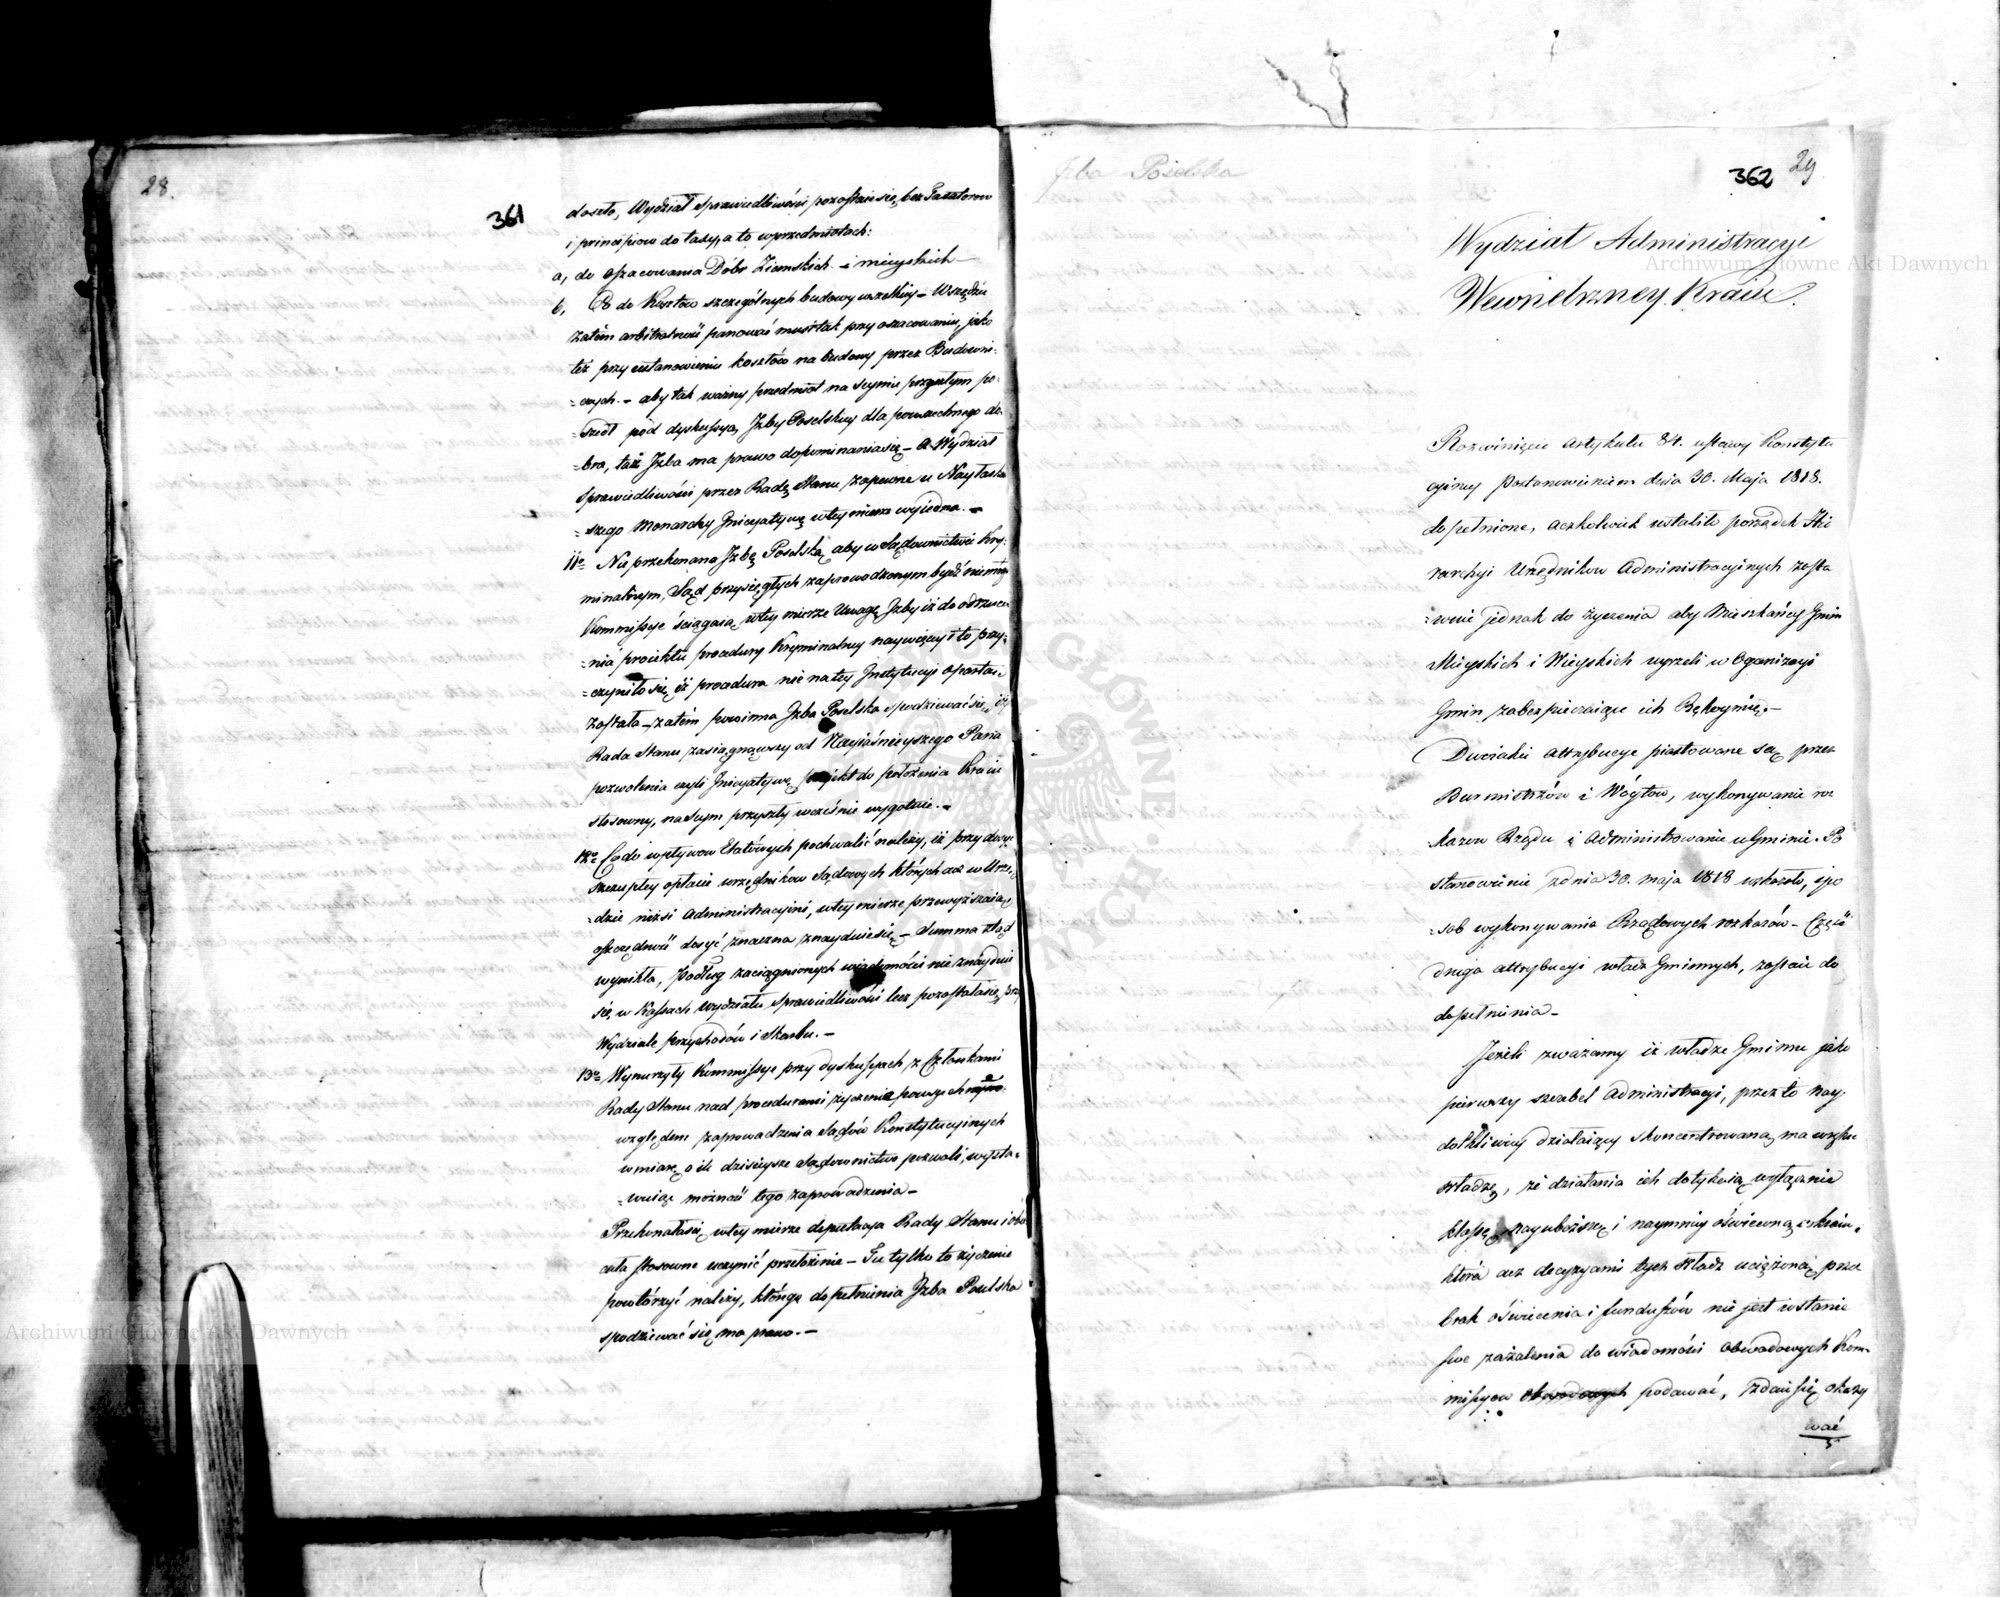 28.
361
doszło, Wydział Sprawiedliwości pozostaie się bez Taxatorow
i principiow do taxy, a to w przedmiotach:
a, do oszacowania Dóbr Ziemskich i mieyskich
b, do Kosztow szczególnych budowy wszelkiey – Wszędzie
zatém arbitralność panować musi tak przy oszacowaniu, jako
téż przy ustanowieniu kosztów na budowy przez Budowni:
=czych. – aby tak ważny przedmiot na seymie przyszłym po:
=szedł pod dyskussyą Jzby Poselskiey dla powszechnego do:
=bra, taż Jzba ma prawo dopominania się – a Wydział
Sprawiedliwości przez Radę Stanu zapewne u Nayłaska
=wszego Monarchy Jnicyatywę w tey mierze wyiedna. –
11o Nie przekonana Jzba Poselska, aby w Sądownictwie Kry:
minalnym, Sąd przysięgłych zaprowadzonym bydź nie miał
Kommissye ściągaią w tey mierze Uwagę Jzby iż do odrzuce
=nia proiektu procedury Kryminalney naywięcey i to przy:
=czyniło się iż procedura nie na tey Jnstytucyi oparta
została – zatém powinna Jzba Poselska spodziewać się, iż
Rada Stanu zasiągnąwszy od Nayiaśnieyszego Pana
pozwolenia czyli Jnicyatywę projekt do położenia Kraiu
stosowny, na Seym przyszły wcześnie wygotuie. –
12o Co do wpływow Etatowych pochwalić należy, iż przy dosyć
szczupłey opłacie urzędnikow Sądowych których acz w Urzę:
=dzie niżsi Administracyini, w tey mierze przewyższaią
oszczędność dosyć znaczna znayduie się – Summa ztąd
wynikła, podług zaciągnionych wiadomości nie znayduie
się w Kassach Wydziału Sprawiedliwości lecz pozostała się przy
Wydziale przychodów i Skarbu. –
13o Wynurzyły Kommissye przy dyskussyach z Członkami
Rady Stanu nad procedurami życzenia powszechne
względem zaprowadzenia Sądów Konstytucyinych
w miarę o ile dzisieysze Sądownictwo pozwoli, wysta=
=wuiąc możność tego zaprowadzenia –
Przekonała się w tey mierze deputacya Rady Stanu i obie
cała stosowne uczynić przełożenie – Tu tylko to życzenie
powtórzyć należy, którego dopełnienia Jzba Poselska
spodziewać się ma prawo. –
Jzba Poselska
362
29
Wydział Administracyi
Wewnętrzney Kraiu.
Rozwinięcie artykułu 84. ustawy Konstytu
cyiney Postanowieniem dnia 30. Maja 1818.
dopełnione, aczkolwiek ustaliło porządek Hie
rarchyi Urzędnikow Administracyinych zosta
=wuie jednak do życzenia aby Mieszkańcy Gmin
Mieyskich i Wieyskich uyrzeli w Oganizacyi
Gmin zabezpieczaiące ich Rękoymię. –
Dwoiakie attrybucye piastowane są przez
Burmistrzów i Wóytow, wykonywanie roz
kazow Rządu i Administrowanie w Gminie. Po
stanowienie z dnia 30. maja 1818 wskazało, spo
=sob wykonywania Rządowych rozkazów – Część
druga attrybucyi władz Gminnych, zostaie do
dopełnienia –
Jeżeli zważamy iż władze Gminne jako
pierwszy szczebel Administracyi, przez to nay
dotkliwiey działaiący skoncentrowaną ma wszelką
władzę, że działania ich dotykaią wyłącznie
klassę nayuboższą i naymniey oświeconą w kraiu,
która acz decyzyami tych Władz uciążona, przez
brak oświecenia i funduszów nie jest w stanie
swe zażalenia do wiadomości Obwodowych Kom=
missyow obwodowych podawać, zdaie się okazy
wać